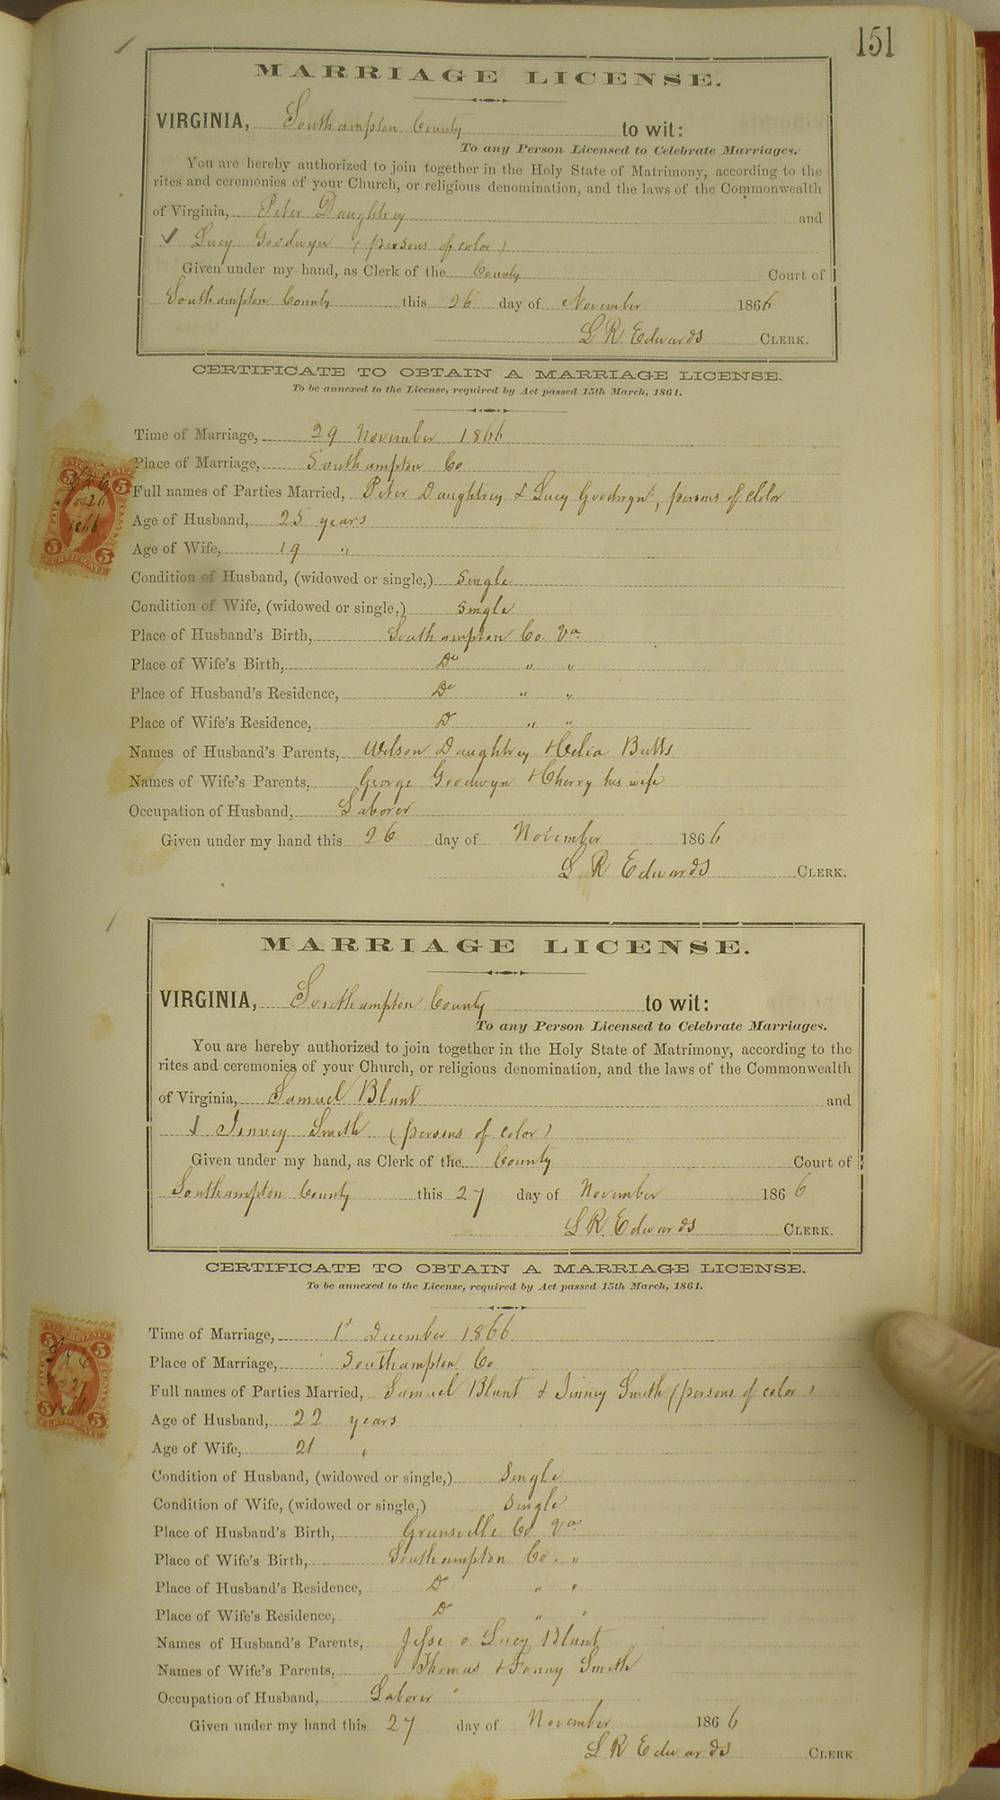 151
MARRIAGE LICENSE.
VIRGINIA, Southampton County to wit:
To any Person Licensed to Celebrate Marriages.
You are hereby authorized to join together in the Holy State of Matrimony, according to the
rites and ceremonies of your Church, or religious denomination, and the laws of the Commonwealth
of Virginia, Peter Daughtrey and
✓ Lucy Goodwyn (persons of color)
Given under my hand, as Clerk of the County Court of
Southampton County this 26 day of November 1866
L R Edwards CLERK.
CERTIFICATE TO OBTAIN A MARRIAGE LICENSE.
To be annexed to the License, required by Act passed 15th March, 1861.
Time of Marriage, 29 November 1866
Place of Marriage, Southampton Co
Full names of Parties Married, Peter Daughtrey & Lucy Goodwyn, persons of Color
Age of Husband, 25 years
Age of Wife, 19 "
Condition of Husband, (widowed or single,) Single
Condition of Wife, (widowed or single,) Single
Place of Husband's Birth, Southampton Co. Va
Place of Wife's Birth, Do " "
Place of Husband's Residence, Do " "
Place of Wife's Residence, D " "
Names of Husband's Parents, Wilson Daughtrey & Butts
Names of Wife's Parents, George Goodwyn & Cherry his wife
Occupation of Husband, Laborer
Given under my hand this 26 day of November 1866
L R Edwards CLERK.
MARRIAGE LICENSE.
VIRGINIA, Southampton County to wit:
To any Person Licensed to Celebrate Marriages.
You are hereby authorized to join together in the Holy State of Matrimony, according to the
rites and ceremonies of your Church, or religious denomination, and the laws of the Commonwealth
of Virginia, Samuel Blunt and
✓ Jinney Smith (persons of color)
Given under my hand, as Clerk of the County Court of
Southampton County this 27 day of November 1866
L R. Edwards CLERK.
CERTIFICATE TO OBTAIN A MARRIAGE LICENSE.
To be annexed to the License, required by Act passed 15th March, 1861.
Time of Marriage, 1st December 1866
Place of Marriage, Southampton Co
Full names of Parties Married, Samuel Blunt & Jinney Smith (persons of color)
Age of Husband, 22 years
Age of Wife, 21 "
Condition of Husband, (widowed or single,) Single
Condition of Wife, (widowed or single,) Single
Place of Husband's Birth, Greensville Co Va
Place of Wife's Birth, Southampton Co. "
Place of Husband's Residence, Do " "
Place of Wife's Residence, Do " "
Names of Husband's Parents, Jesse & Lucy Blunt
Names of Wife's Parents, Thomas & Fanny Smith
Occupation of Husband, Laborer
Given under my hand this 27 day of November 1866
L R Edwards CLERK